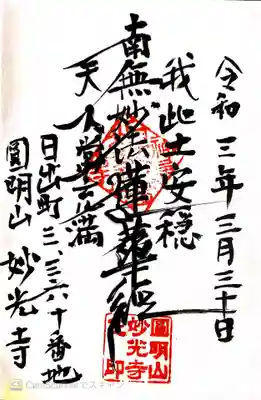 令和三年三月三十日
我此土安穏
南無妙法蓮華経
天人常充満
日出町三、三六十番地
圓明山 妙光寺
圓明山
妙光寺
之印
CamScannerでスキャン